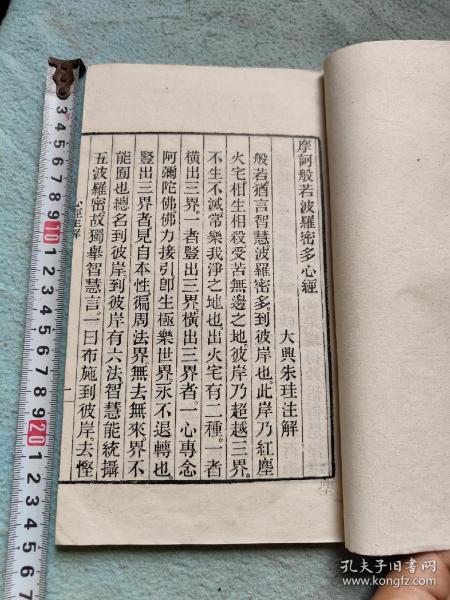 摩訶般若波羅密多心經
大興朱珪注解
般若猶言智慧波羅密多到彼岸也此岸乃紅塵
火宅相生相殺受苦無邊之地彼岸乃超越三界。
不生不滅常樂我淨之地也出火宅有二種。一者
橫出三界。一者豎出三界橫出三界者。一心專念
阿彌陀佛佛力接引卽生極樂世界。永不退轉也。
豎出三界者見自本性徧周法界無去無來界不
能囿也總名到彼岸到彼岸有六法智慧能統攝
五波羅密故獨舉智慧言。一曰布施到彼岸。去慳
心經注解
一
3 4 5 6 7 8 9 10 1 2 3 4 5 6 7 8 9 20 1 2 3 4
孔夫子旧书网
www.kongfz.com